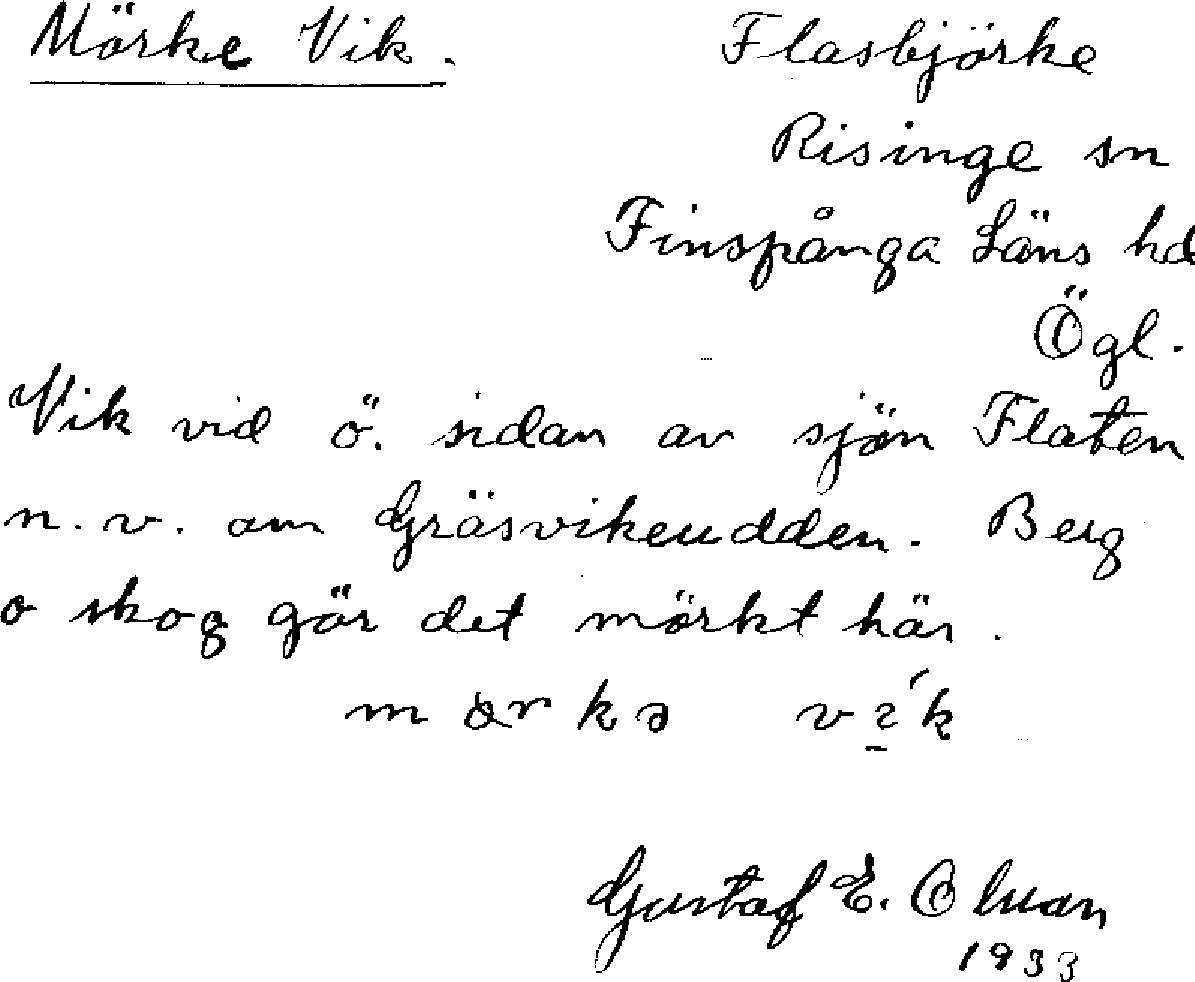 Mörke Vik. Flasbjörke
Risinge sn
Finspånga Läns hd
Ögl.
Vik vid ö. sidan av sjön Flaten
n.v. om Gräsvikeudden. Berg
o skog gör det mörkt här.
Gustaf E. Olsson
1933